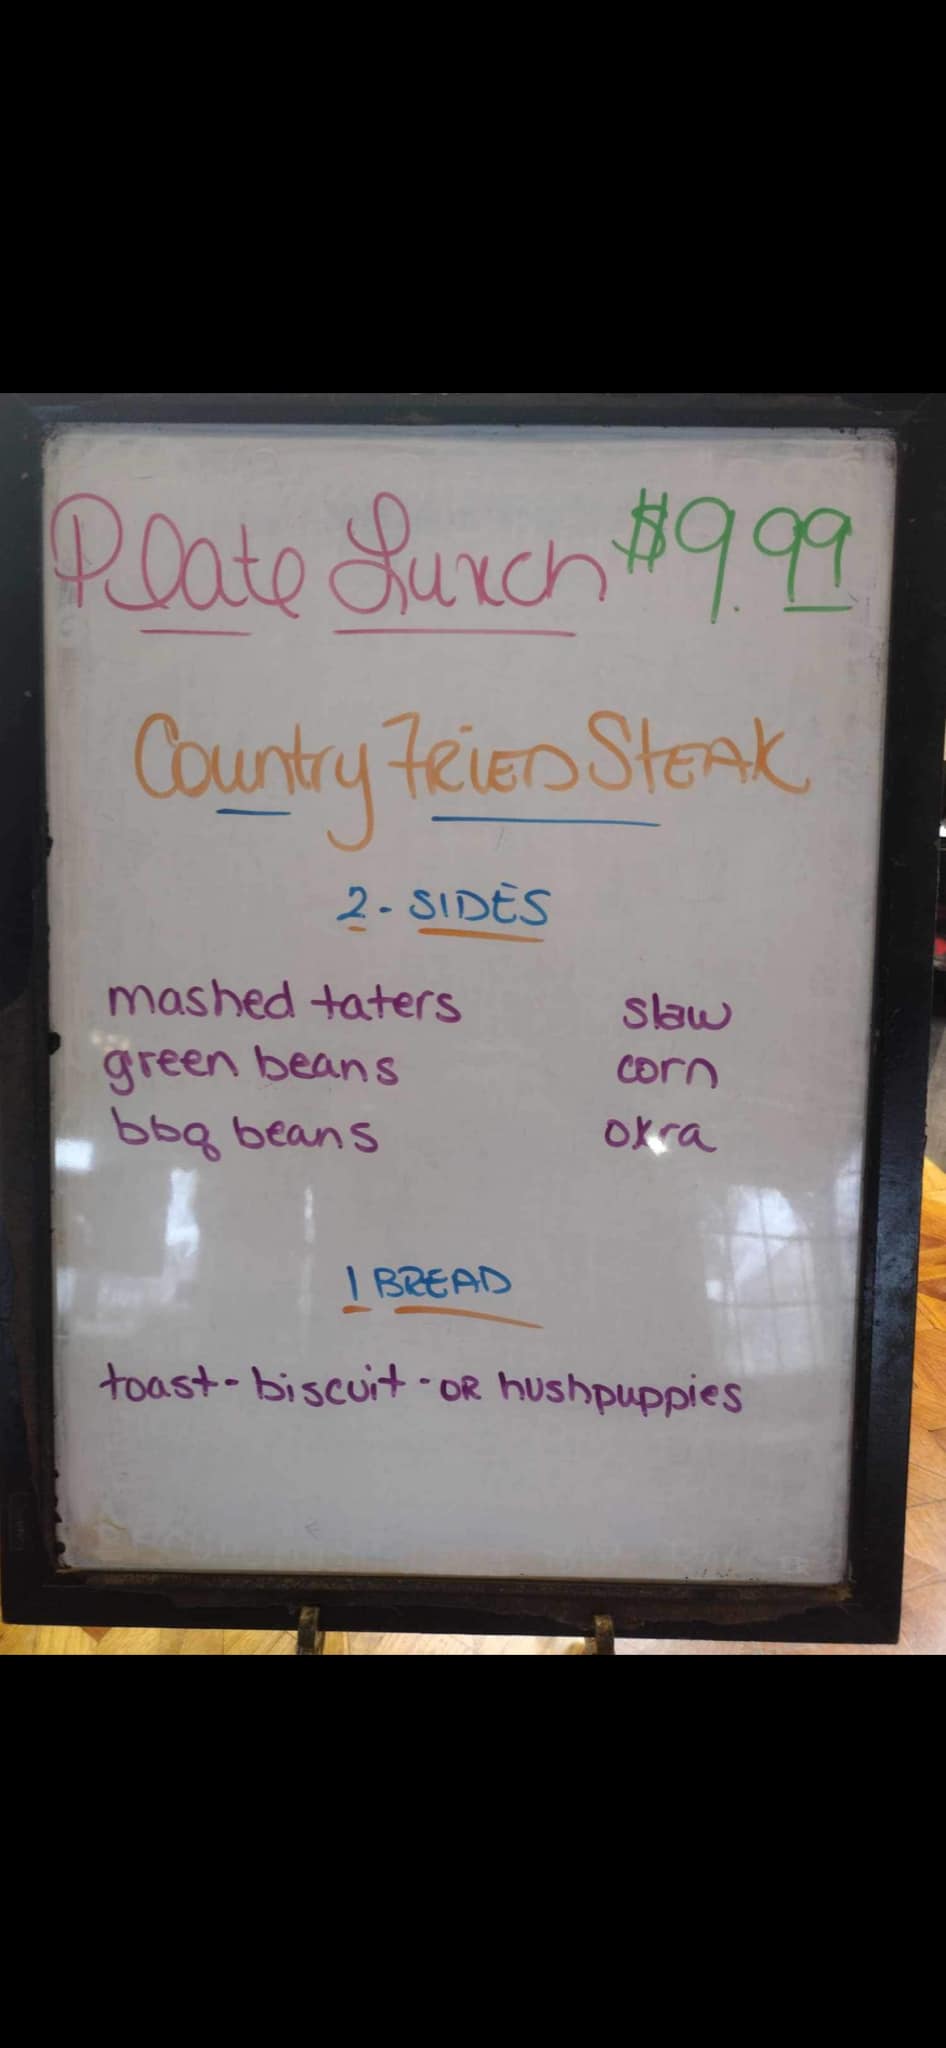 Plate Lunch $9.99
Country FRIED STEAK
2 - SIDES
mashed taters slaw
green beans corn
bbq beans okra
1 BREAD
toast - biscuit - OR hushpuppies